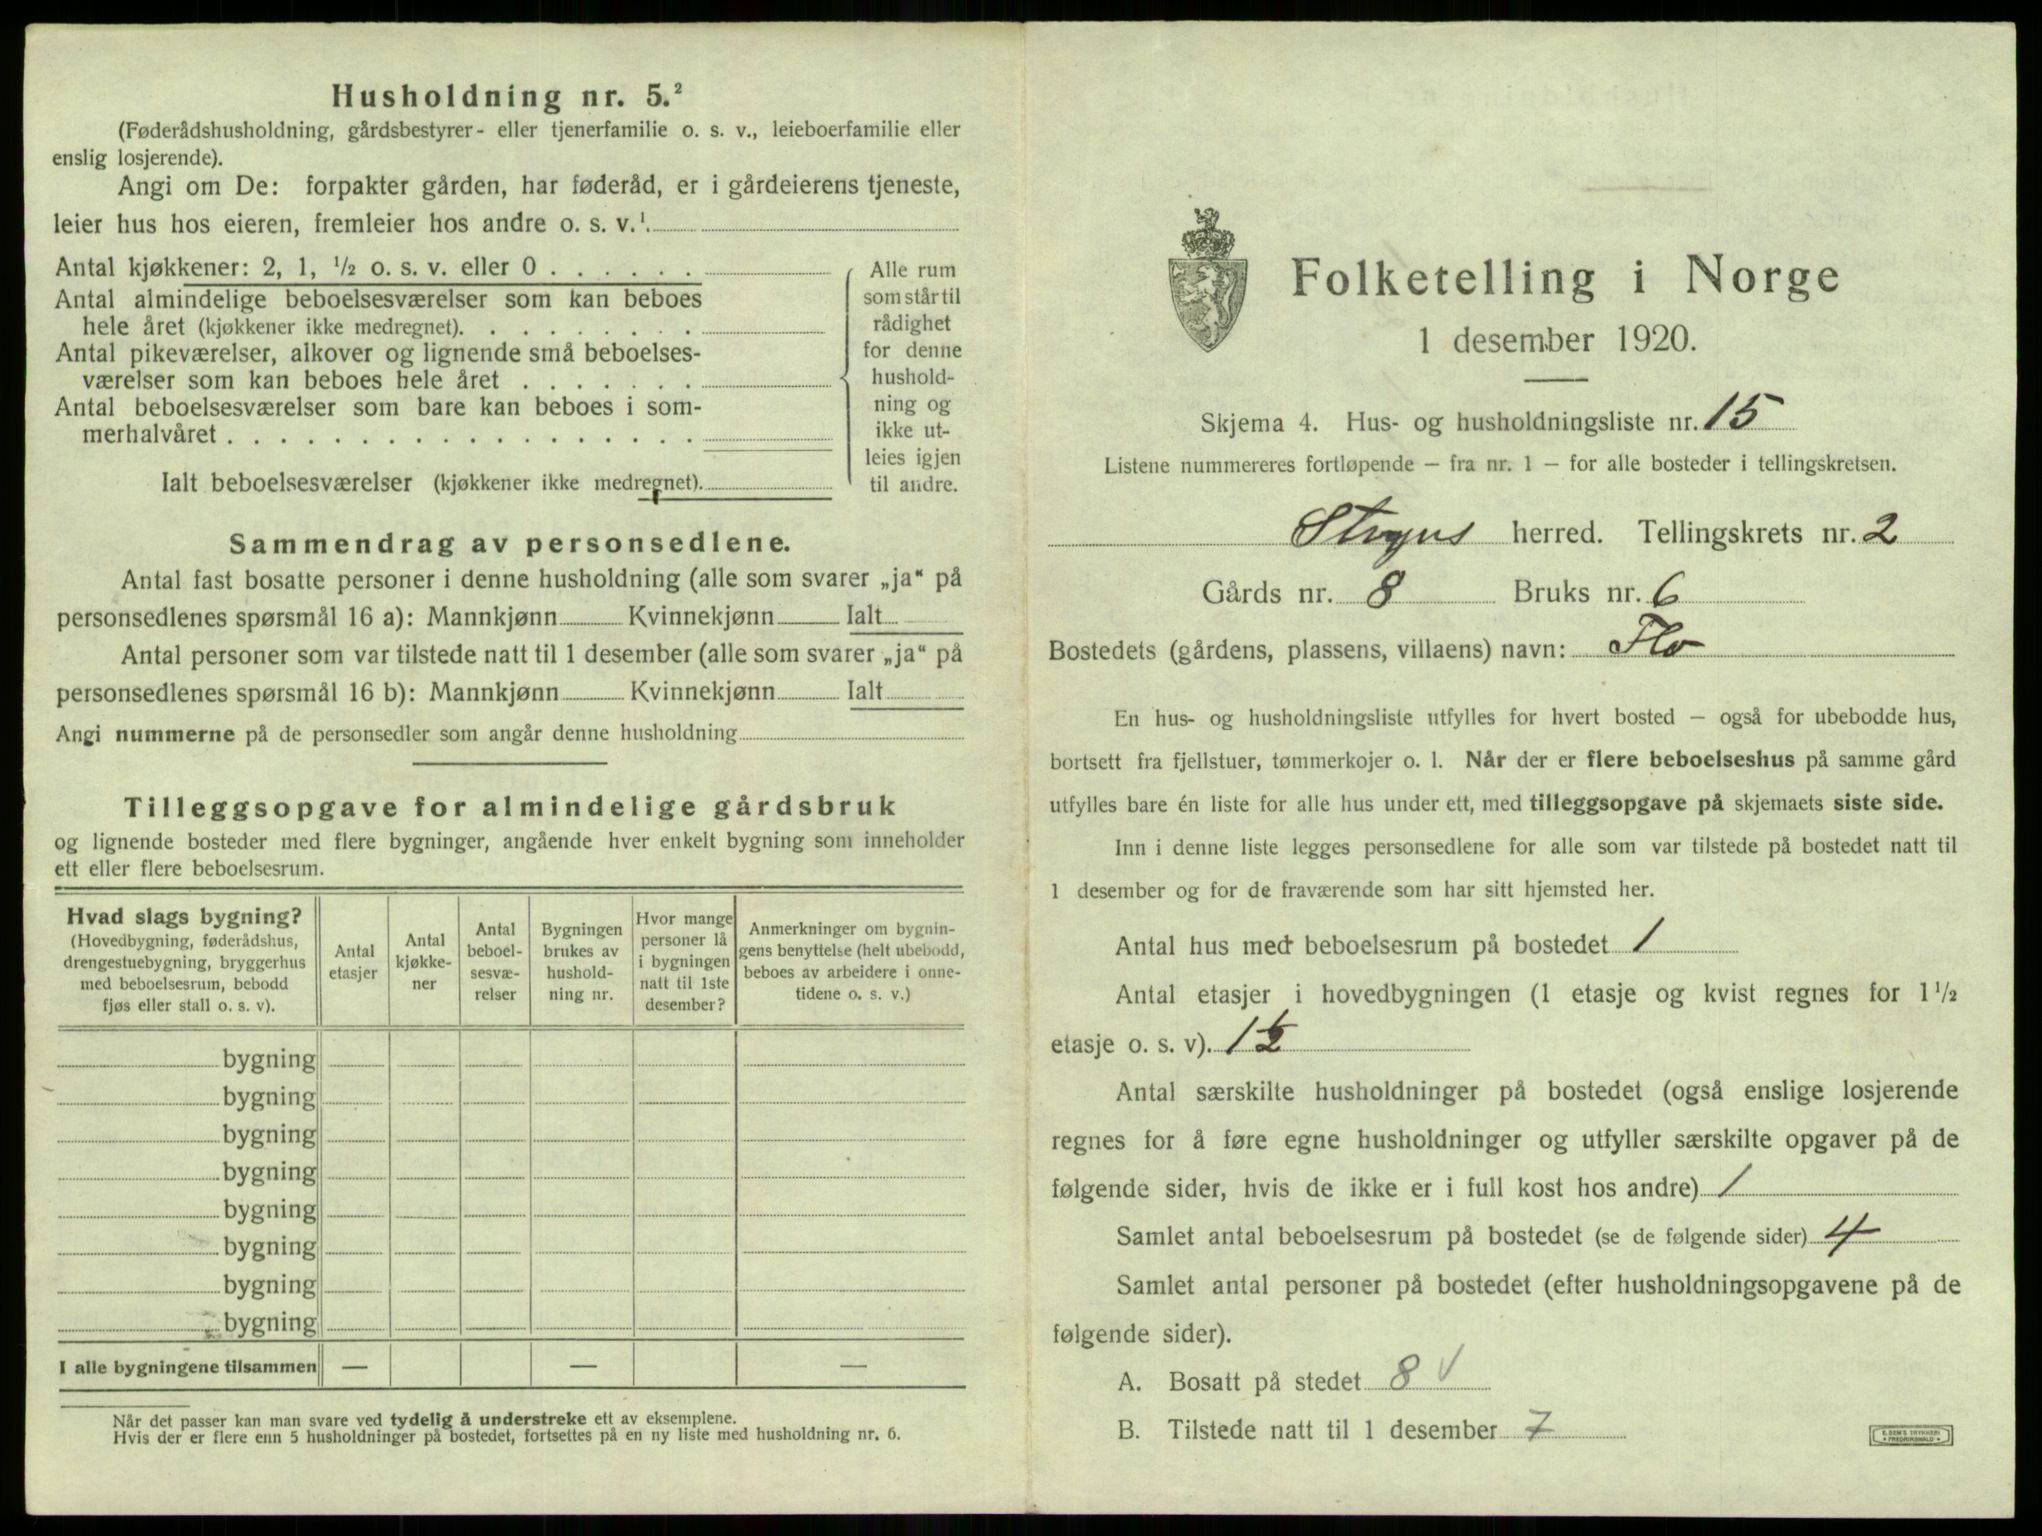 Husholdning nr. 5.²
(Føderådshusholdning, gårdsbestyrer- eller tjenerfamilie o. s. v., leieboerfamilie eller
enslig losjerende).
Angi om De: forpakter gården, har føderåd, er i gårdeierens tjeneste,
leier hus hos eieren, fremleier hos andre o. s. v.¹
Antal kjøkkener: 2, 1, ½ o. s. v. eller 0 . . . . . .
Antal almindelige beboelsesværelser som kan beboes
hele året (kjøkkener ikke medregnet). . . . . . . . .
Antal pikeværelser, alkover og lignende små beboelses-
værelser som kan beboes hele året . . . . . . .
Antal beboelsesværelser som bare kan beboes i som-
merhalvåret . . . . . . . . . . . . . . . . . .
Alle rum
som står til
rådighet
for denne
hushold-
ning og
ikke ut-
leies igjen
til andre.
Ialt beboelsesværelser (kjøkkener ikke medregnet).
Sammendrag av personsedlene.
Antal fast bosatte personer i denne husholdning (alle som svarer „ja“ på
personsedlenes spørsmål 16 a): Mannkjønn Kvinnekjønn Ialt
Antal personer som var tilstede natt til 1 desember (alle som svarer „ja“ på
personsedlenes spørsmål 16 b): Mannkjønn Kvinnekjønn Ialt
Angi nummerne på de personsedler som angår denne husholdning
Tilleggsopgave for almindelige gårdsbruk
og lignende bosteder med flere bygninger, angående hver enkelt bygning som inneholder
ett eller flere beboelsesrum.
Hvad slags bygning?
(Hovedbygning, føderådshus,
drengestuebygning, bryggerhus
med beboelsesrum, bebodd
fjøs eller stall o. s. v).
Antal
etasjer
Antal
kjøkke-
ner
Antal
beboel-
sesvæ-
relser
Bygningen
brukes av
hushold-
ning nr.
Hvor mange
personer lå
i bygningen
natt til 1ste
desember?
Anmerkninger om bygnin-
gens benyttelse (helt ubebodd,
beboes av arbeidere i onne-
tidene o. s. v.)
bygning
bygning
bygning
bygning
bygning
bygning
bygning
bygning
I alle bygningene tilsammen — — —
Når det passer kan man svare ved tydelig å understreke ett av eksemplene.
Hvis der er flere enn 5 husholdninger på bostedet, fortsettes på en ny liste med husholdning nr. 6.
Folketelling i Norge
1 desember 1920.
Skjema 4. Hus- og husholdningsliste nr. 15
Listene nummereres fortløpende — fra nr. 1 — for alle bosteder i tellingskretsen.
Stryns herred. Tellingskrets nr. 2
Gårds nr. 8 Bruks nr. 6
Bostedets (gårdens, plassens, villaens) navn: Flo
En hus- og husholdningsliste utfylles for hvert bosted — også for ubebodde hus,
bortsett fra fjellstuer, tømmerkojer o. l. Når der er flere beboelseshus på samme gård
utfylles bare én liste for alle hus under ett, med tilleggsopgave på skjemaets siste side.
Inn i denne liste legges personsedlene for alle som var tilstede på bostedet natt til
1 desember og for de fraværende som har sitt hjemsted her.
Antal hus med beboelsesrum på bostedet 1
Antal etasjer i hovedbygningen (1 etasje og kvist regnes for 1½
etasje o. s. v). 1½
Antal særskilte husholdninger på bostedet (også enslige losjerende
regnes for å føre egne husholdninger og utfyller særskilte opgaver på de
følgende sider, hvis de ikke er i full kost hos andre) 1
Samlet antal beboelsesrum på bostedet (se de følgende sider) 4
Samlet antal personer på bostedet (efter husholdningsopgavene på de
følgende sider).
A. Bosatt på stedet 8 √
B. Tilstede natt til 1 desember 7
E. SEM'S TRYKKERI
FREDRIKSHALD